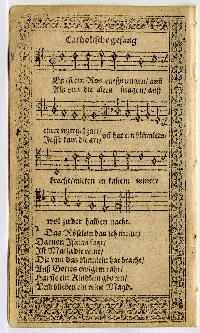 Catholische gesang
Es ist ein Ros entsprungen/ auß
Als uns die alten sungen/ auß
einer wurtzel zart/
Jesse kam die art/
uñ hat ein blümlein
bracht mitten in kaltem winter
wol zu der halben nacht.
Das Röselein das ich meine/
Daruon Isaias sagt/
Ist Maria die reine/
Die uns das blümlein hat bracht/
Auß Gottes ewigem raht/
Hat sie ein Kindlein gboren/
Und blieben ein reine Magd.